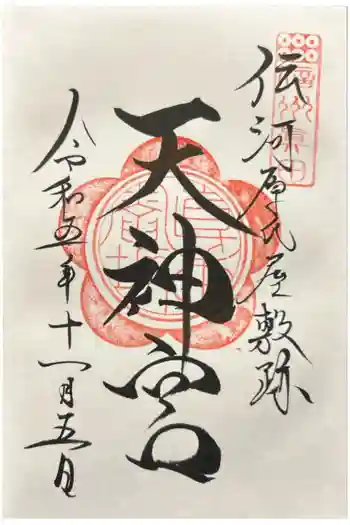 伝河原氏屋敷跡
天神宮
令和五年十一月五日